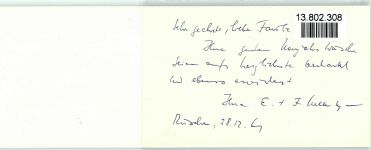 13.802.308
Sehr geehrte, liebe Familie
Ihre guten Neujahrswünsche
seien aufs herzlichste bedankt
und ebenso erwidert
Ihre E. +
München, 28.12.